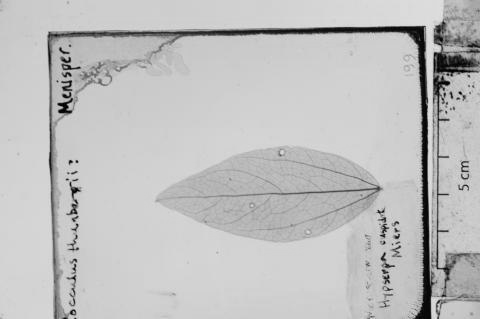 Menisper.
occulus thunbergii?
199
Hypserpa cuspidat
Miers
5 cm